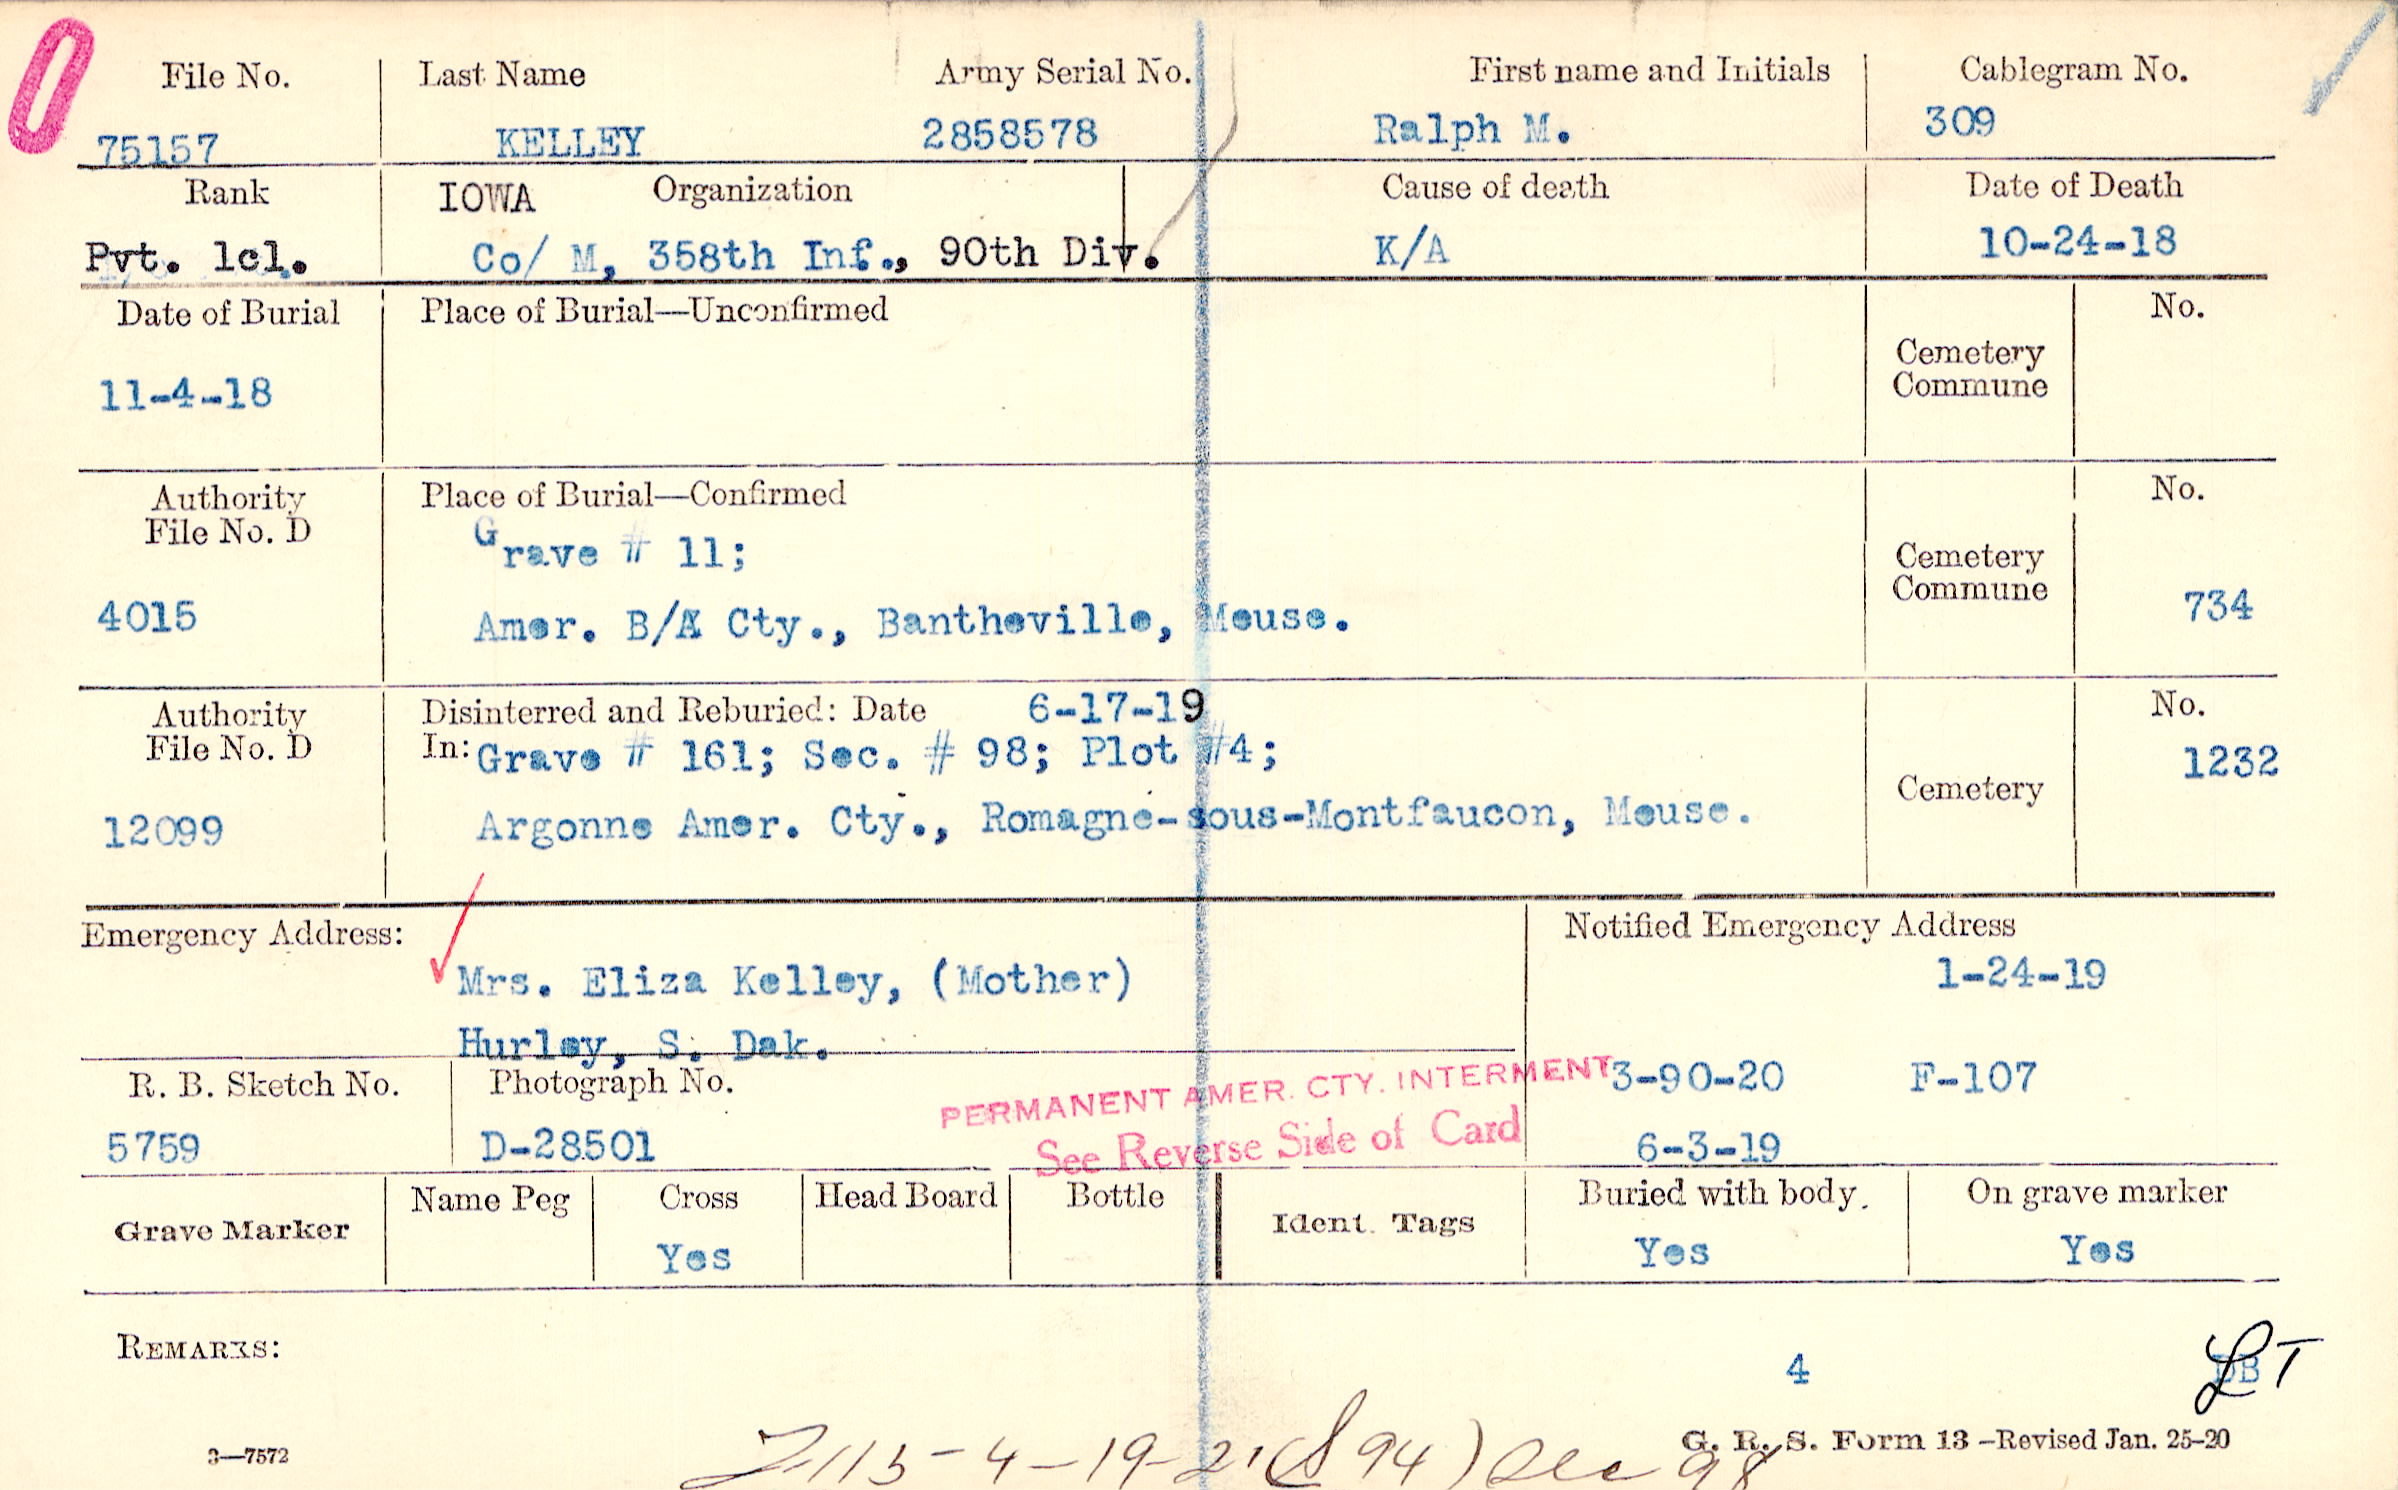 File No. Last Name Army Serial No. First name and Initials Cablegram No.
75157 KELLEY 2858578 Ralph M. 309
Rank IOWA Organization Cause of death Date of Death
Pvt. 1cl. Co/ M, 358th Inf., 90th Div. K/A 10-24-18
Date of Burial Place of Burial—Unconfirmed No.
Cemetery
Commune
11-4-18
Authority Place of Burial—Confirmed No.
File No. D
Grave # 11;
Cemetery
Commune
4015 Amer. B/A Cty., Bantheville, Meuse. 734
Authority Disinterred and Reburied: Date 6-17-19 No.
File No. D In: Grave # 161; Sec. # 98; Plot #4; 1232
Cemetery
12099 Argonne Amer. Cty., Romagne-sous-Montfaucon, Meuse.
Emergency Address: Notified Emergency Address
Mrs. Eliza Kelley, (Mother) 1-24-19
Hurley, S. Dak.
R. B. Sketch No. Photograph No. PERMANENT AMER. CTY. INTERMENT 3-90-20 F-107
5759 D-28501 See Reverse Side of Card 6-3-19
Grave Marker Name Peg Cross Head Board Bottle Ident. Tags Buried with body. On grave marker
Yes Yes Yes
REMARKS:
4 DB LT
3—7572 113-4-19-21 (S 94) Sec 98 G. R. S. Form 13—Revised Jan. 25-20